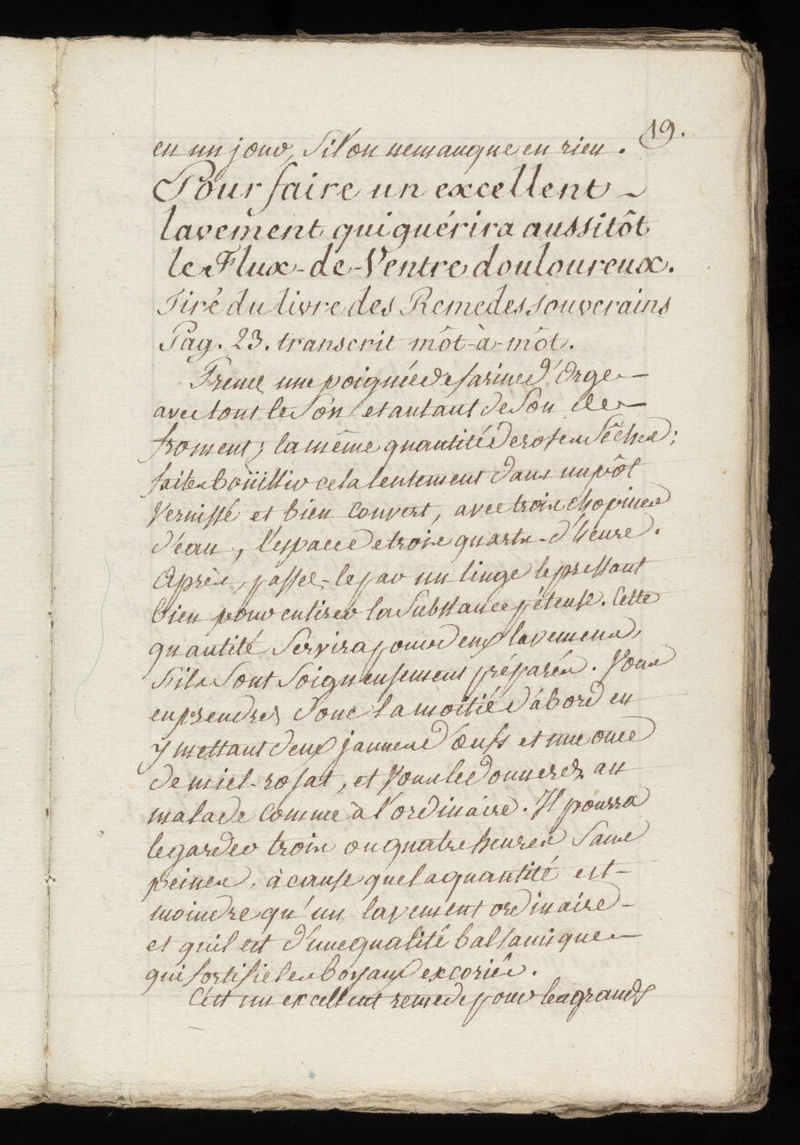 19.
en un jour, si l'on ne manque en rien.
Pour faire un excellent
lavement qui guérira aussitôt
le Flux-de-Ventre douloureux.
Tiré du livre des Remedes souverains
Pag. 23. transcrit môt-à-môt.
Prenez une poignée de farine d'Orge
avec tout le Son et autant de Son de
froment; la même quantité de roses sêches;
faites boüillir cela lentement dans un pôt
vernissé et bien couvert, avec trois chopines
d'eau, l'espace de trois quarts-d'heure.
Après, passez-le par un linge le pressant
bien pour en tirer la Substance pâteuse. Cette
quantité Servira pour deux lavemens,
s'ils sont soigneusement préparés. Vous
en prendrez donc la moitié d'abord en
y mettant deux jaunes d'œufs et une once
de miel-rosat, et vous le donnerez au
malade comme à l'ordinaire. Il pourra
le garder trois ou quatre heures sans
peines, à cause que la quantité est
moindre qu'un lavement ordinaire
et qu'il est d'une qualité balsamique
qui fortifie les boyaux excoriés.
C'est un excellent remede pour les grands